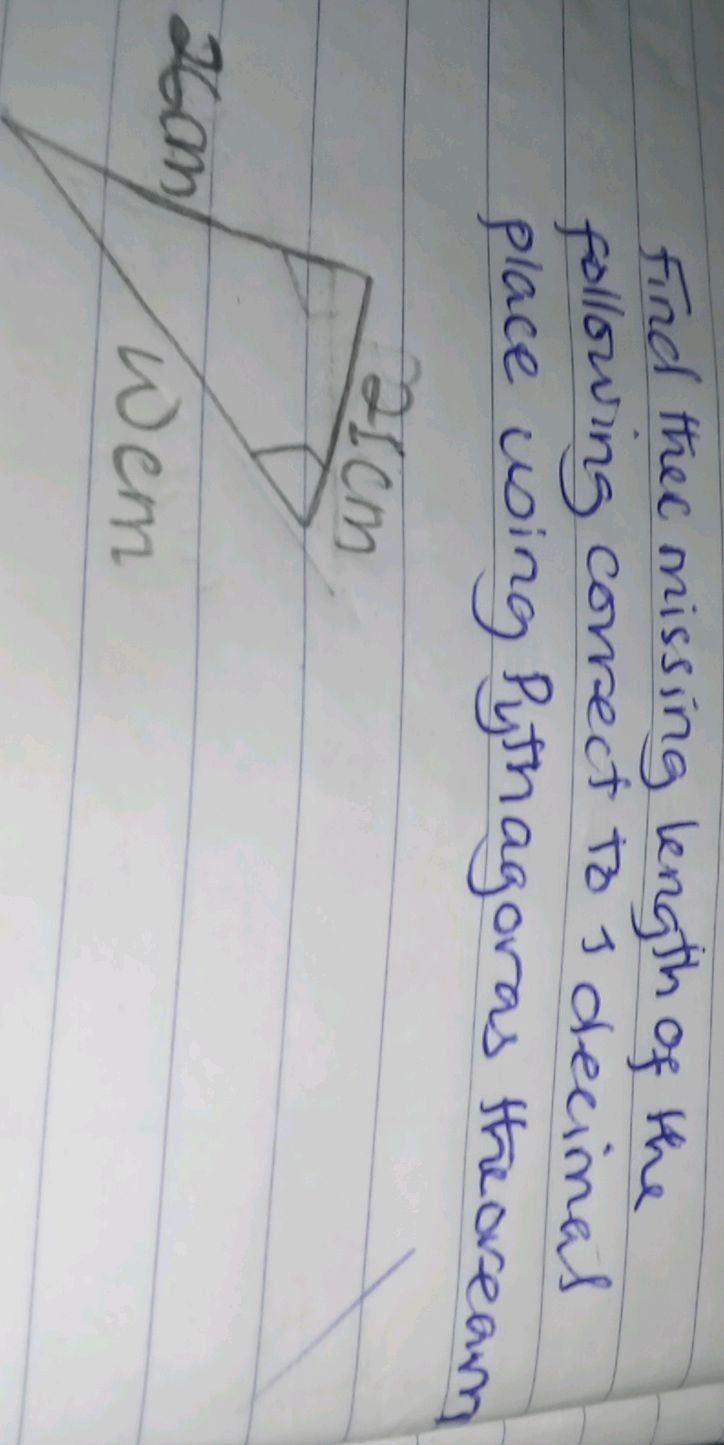 Find thec missing length of the
following correct to 1 decimal
place using Pythagoras theoream
26cm
21cm
Wcm